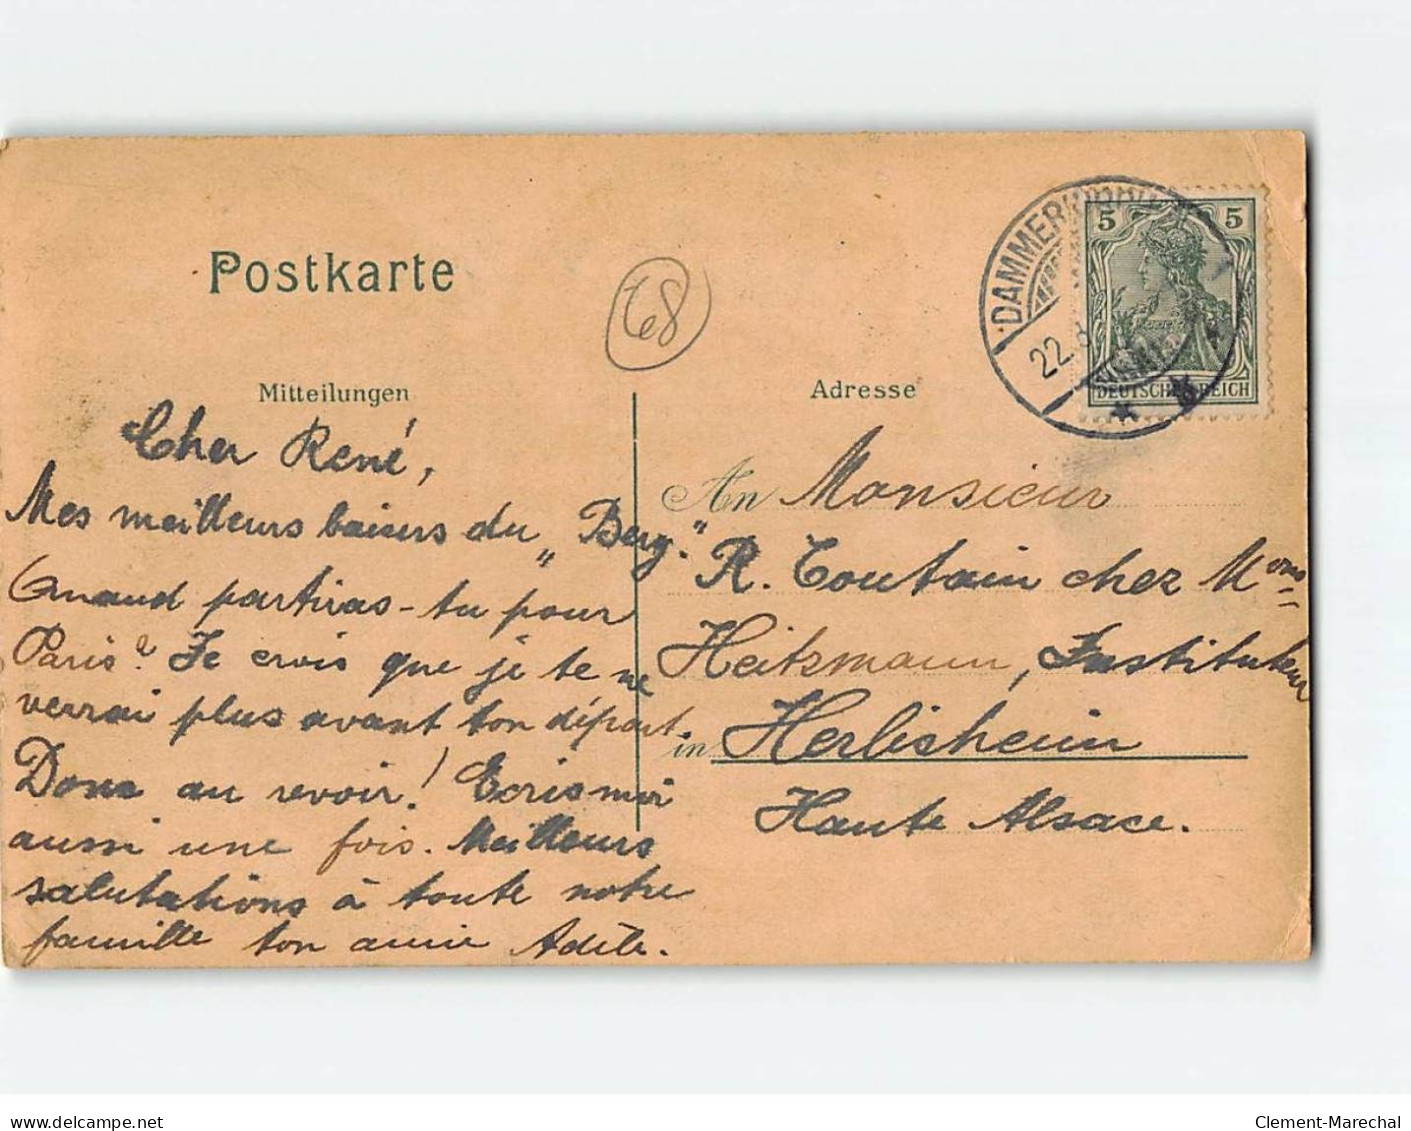 Postkarte
68
DAMMERKIRCH
22.8
5 5
DEUTSCHES REICH
Mitteilungen
Cher René,
Mes meilleurs baisers du „Berg."
Quand partiras-tu pour
Paris? Je crois que je te ne
verrai plus avant ton départ.
Donc au revoir! Ecris moi
aussi une fois. Meilleurs
salutations à toute notre
famille ton amie Adèle.
Adresse
An Monsieur
R. Toutain chez Mons
Heitzmann, Instituteur
in Herlisheim
Haute Alsace.
delcampe.net
Clement-Marechal